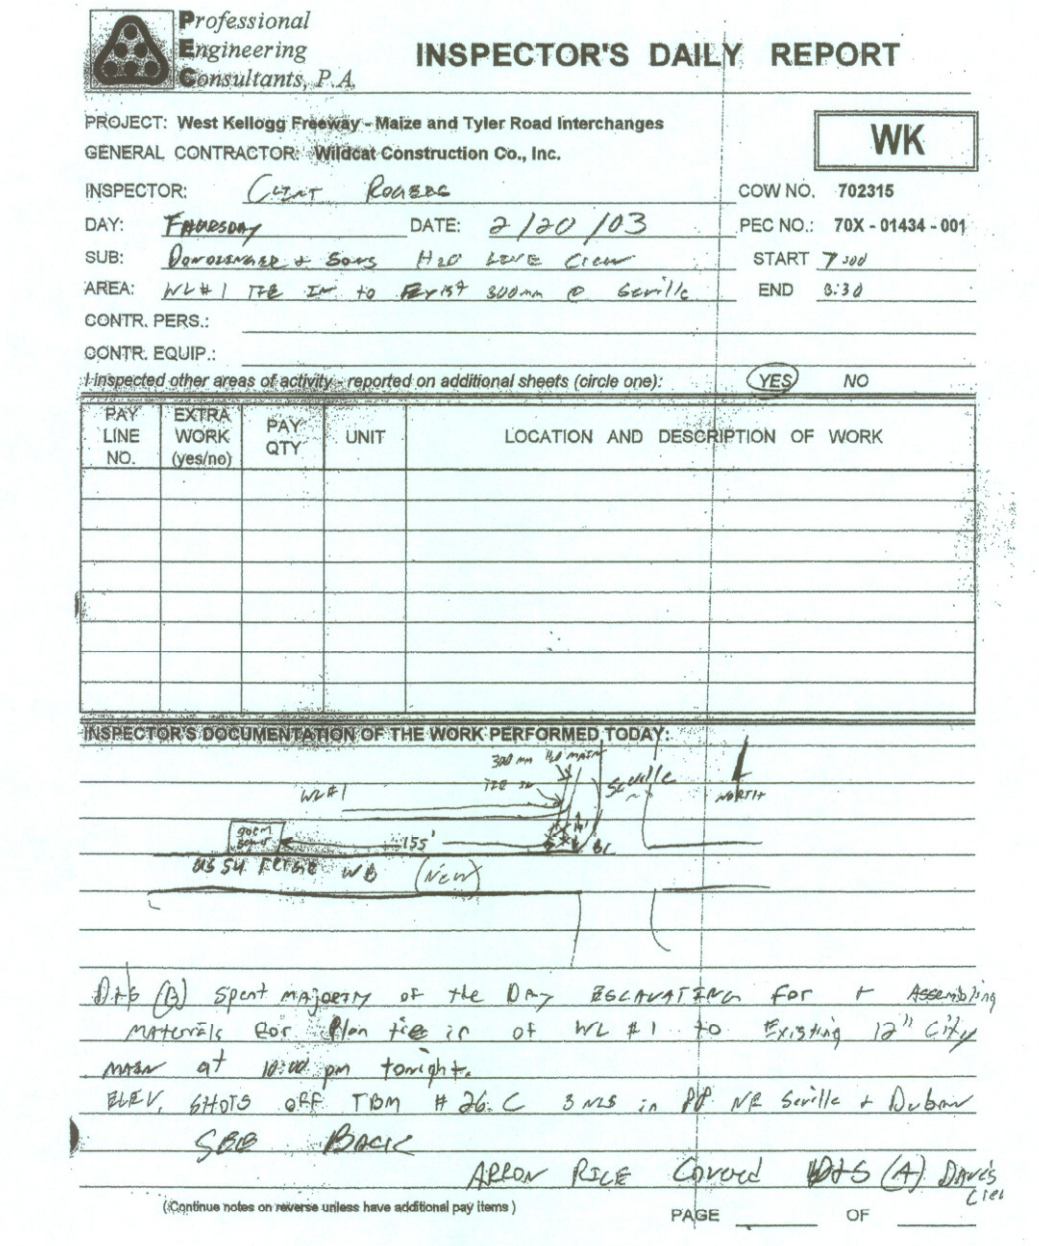 Professional
Engineering
Consultants, P.A.
INSPECTOR'S DAILY REPORT
PROJECT: West Kellogg Freeway - Maize and Tyler Road Interchanges
WK
GENERAL CONTRACTOR: Wildcat Construction Co., Inc.
INSPECTOR: Clint Rogers COW NO. 702315
DAY: Thursday DATE: 2/20/03 PEC NO.: 70X - 01434 - 001
SUB: & Sons H2O LINE Crew START 7:00
AREA: WL#1 TIE IN to Exist 300mm @ Seville END 8:30
CONTR. PERS.:
CONTR. EQUIP.:
I inspected other areas of activity - reported on additional sheets (circle one): YES NO
PAY LINE NO. EXTRA WORK (yes/no) PAY QTY UNIT LOCATION AND DESCRIPTION OF WORK
INSPECTOR'S DOCUMENTATION OF THE WORK PERFORMED TODAY:
300 mm H2O MAIN
TIE IN Seville
WL#1 NORTH
155'
US 54 WB (New)
D+S (B) Spent MAJORITY of the DAY ESCAVATING for + Assembling
MATERIALS for Plan tie in of WL #1 to Existing 12" City
MAIN at 10:00 pm tonight.
ELEV. SHOTS OFF TBM # 26.C 3 NLS in PP NE Seville + Dubon
SEE BACK
ARRON RICE Covered D+S (A) Dave's
Crew
(Continue notes on reverse unless have additional pay items)
PAGE OF